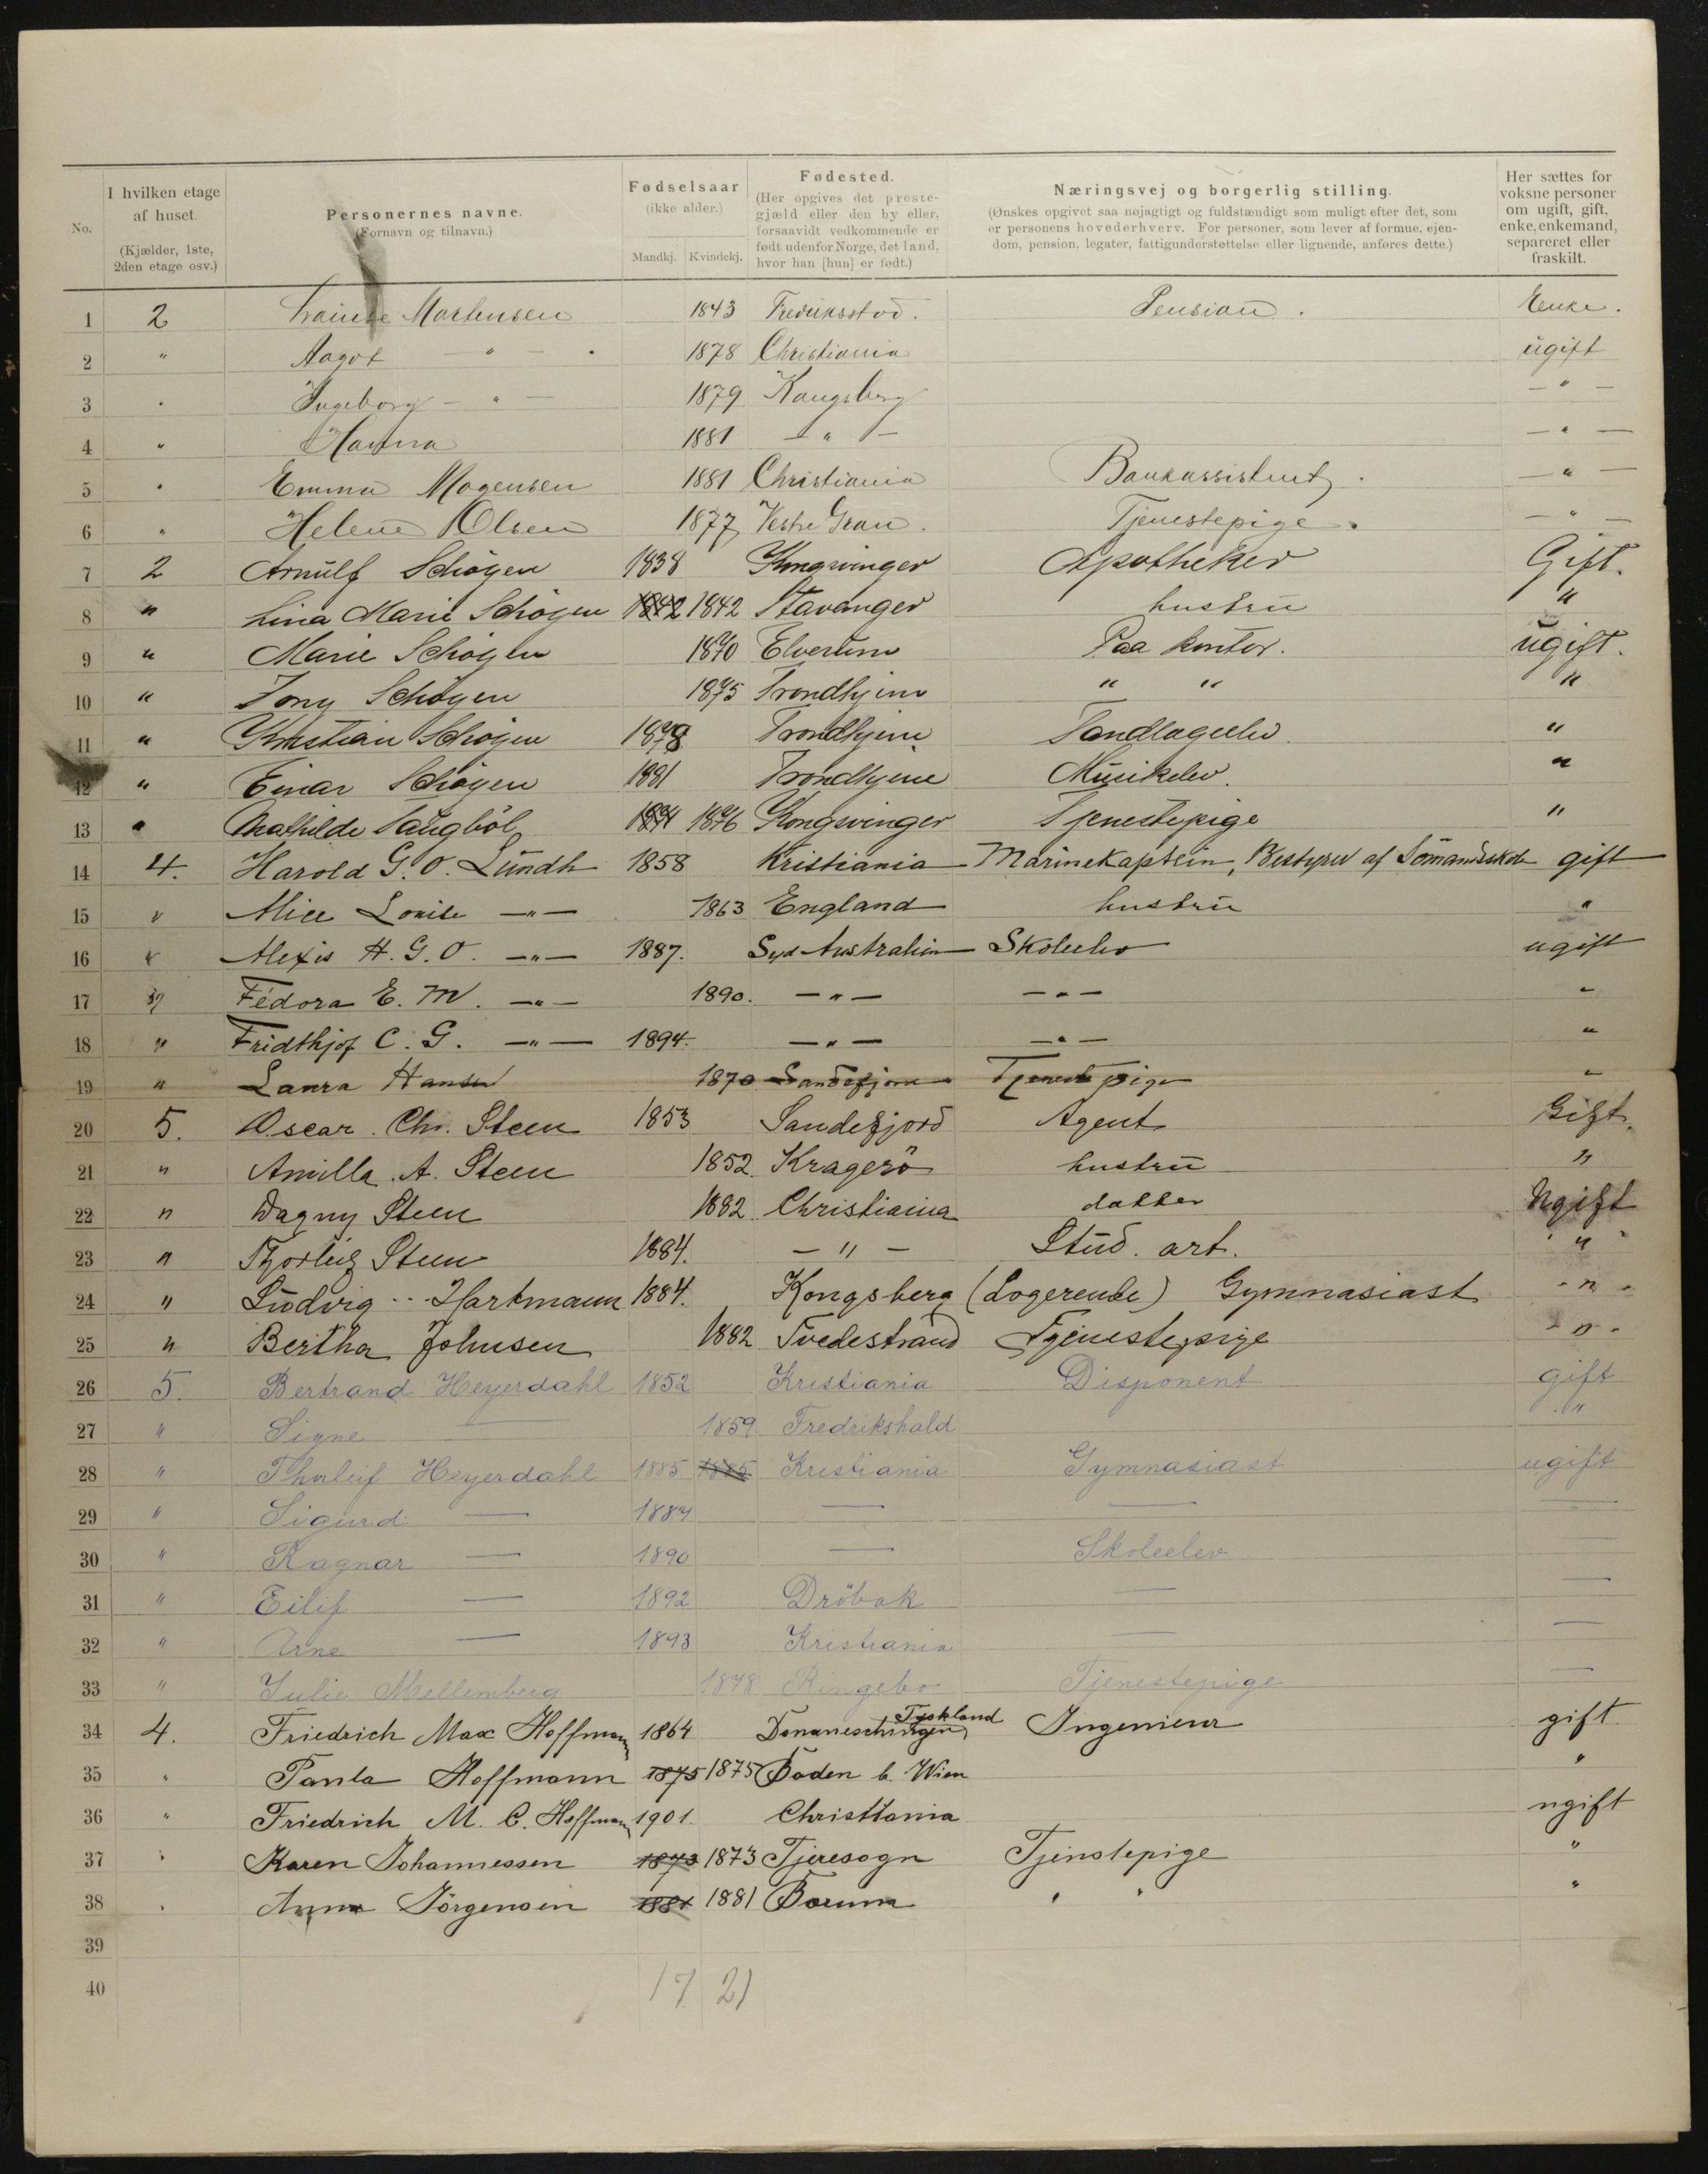 No.
I hvilken etage af huset. (Kjælder, 1ste, 2den etage osv.)
Personernes navne. (Fornavn og tilnavn.)
Fødselsaar (ikke alder.) Mandkj. Kvindekj.
Fødested. (Her opgives det prestegjæld eller den by eller, forsaavidt vedkommende er født udenfor Norge, det land, hvor han [hun] er født.)
Næringsvej og borgerlig stilling. (Ønskes opgivet saa nøjagtigt og fuldstændigt som muligt efter det, som er personens hovederhverv. For personer, som lever af formue, ejendom, pension, legater, fattigunderstøttelse eller lignende, anføres dette.)
Her sættes for voksne personer om ugift, gift, enke, enkemand, separeret eller fraskilt.
1 2 Martensen 1843 Fredriksstad. Pension. Enke.
2 " Aagot — " — 1878 Christiania ugift
3 " Ingeborg — " — 1879 Kongsberg — " —
4 " Hanna 1881 — " — — " —
5 " Emma Mogensen 1881 Christiania Bankassistent. — " —
6 " Helene Olsen 1877 Vestre Gran. Tjenestepige. — " —
7 2 Arnulf Schøyen 1838 Kongsvinger Apotheker Gift.
8 " Lina Marie Schøyen 1842 1842 Stavanger hustru "
9 " Marie Schøyen 1870 Elverum Paa kontor. ugift.
10 " Tony Schøyen 1875 Trondhjem " " "
11 " Kristian Schøyen 1878 Trondhjem Tandlægeelev "
12 " Einar Schøyen 1881 Trondhjem Musikelev. "
13 " Mathilde 1876 Kongsvinger Tjenestepige "
14 4. Harold G. O. Lundh 1858 Kristiania Marinekaptein, Bestyrer af Sømandsskole gift
15 " Alice Louise —"— 1863 England hustru "
16 " Alexis H. G. O. —"— 1887. Syd Australien Skoleelev ugift
17 " Fédora E. M. —"— 1890. —"— —"— "
18 " Fridthjof C. G. —"— 1894. —"— —"— "
19 " Laura Hansen 1870 Sandefjord Tjenestepige "
20 5. Oscar. Chr. Steen 1853 Sandefjord Agent Gift.
21 " Amilla. A. Steen 1852. Kragerö hustru "
22 " Dagny Steen 1882. Christiania datter Ugift
23 " Thorleif Steen 1884. — " — Stud. art. "
24 " Ludvig Hartmann 1884. Kongsberg (Logerende) Gymnasiast - " -
25 " Bertha Johnsen 1882 Tvedestrand Tjenestepige - " -
26 5. Bertrand Heyerdahl 1852 Kristiania Disponent gift
27 " Signe — 1859 Fredrikshald "
28 " Thorleif Heyerdahl 1885 1885 Kristiania Gymnasiast ugift
29 " Sigurd — 1887 — — —
30 " Ragnar — 1890 — Skoleelev —
31 " Eilif — 1892 Dröbak — —
32 " Arne — 1893 Kristiania — —
33 " Julie Mellemberg 1878 Ringebo Tjenestepige —
34 4. Friedrich Max Hoffmann 1864 Donaueschingen, Tyskland Ingenieur gift.
35 " Paula Hoffmann 1875 1875 Baden b. Wien "
36 " Friedrich M. C. Hoffmann 1901. Christiania ugift
37 " Karen Johannessen 1873 1873 Tjeresogn Tjenstepige "
38 " Anna Jörgensen 1881 1881 Bærum " " "
39
40 17 21